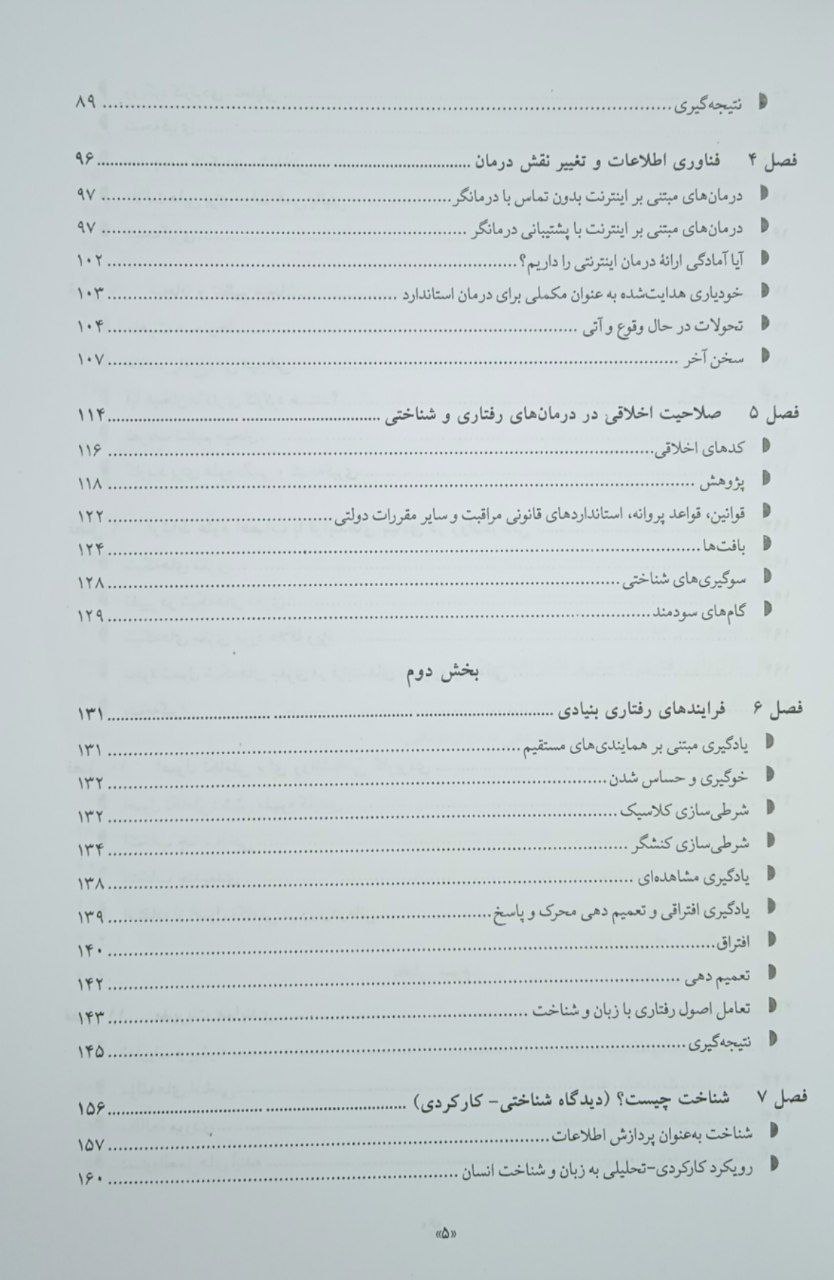 نتیجه‌گیری ........ ۸۹
فصل ۴ فناوری اطلاعات و تغییر نقش درمان ........ ۹۶
درمان‌های مبتنی بر اینترنت بدون تماس با درمانگر ........ ۹۷
درمان‌های مبتنی بر اینترنت با پشتیبانی درمانگر ........ ۹۷
آیا آمادگی ارائهٔ درمان اینترنتی را داریم؟ ........ ۱۰۲
خودیاری هدایت‌شده به عنوان مکملی برای درمان استاندارد ........ ۱۰۳
تحولات در حال وقوع و آتی ........ ۱۰۴
سخن آخر ........ ۱۰۷
فصل ۵ صلاحیت اخلاقی در درمان‌های رفتاری و شناختی ........ ۱۱۴
کدهای اخلاقی ........ ۱۱۶
پژوهش ........ ۱۱۸
قوانین، قواعد پروانه، استانداردهای قانونی مراقبت و سایر مقررات دولتی ........ ۱۲۲
بافت‌ها ........ ۱۲۴
سوگیری‌های شناختی ........ ۱۲۸
گام‌های سودمند ........ ۱۲۹
بخش دوم
فصل ۶ فرایندهای رفتاری بنیادی ........ ۱۳۱
یادگیری مبتنی بر همایندی‌های مستقیم ........ ۱۳۱
خوگیری و حساس شدن ........ ۱۳۲
شرطی‌سازی کلاسیک ........ ۱۳۲
شرطی‌سازی کنشگر ........ ۱۳۴
یادگیری مشاهده‌ای ........ ۱۳۸
یادگیری افتراقی و تعمیم دهی محرک و پاسخ ........ ۱۳۹
افتراق ........ ۱۴۰
تعمیم دهی ........ ۱۴۲
تعامل اصول رفتاری با زبان و شناخت ........ ۱۴۳
نتیجه‌گیری ........ ۱۴۵
فصل ۷ شناخت چیست؟ (دیدگاه شناختی- کارکردی) ........ ۱۵۶
شناخت به‌عنوان پردازش اطلاعات ........ ۱۵۷
رویکرد کارکردی-تحلیلی به زبان و شناخت انسان ........ ۱۶۰
«۵»